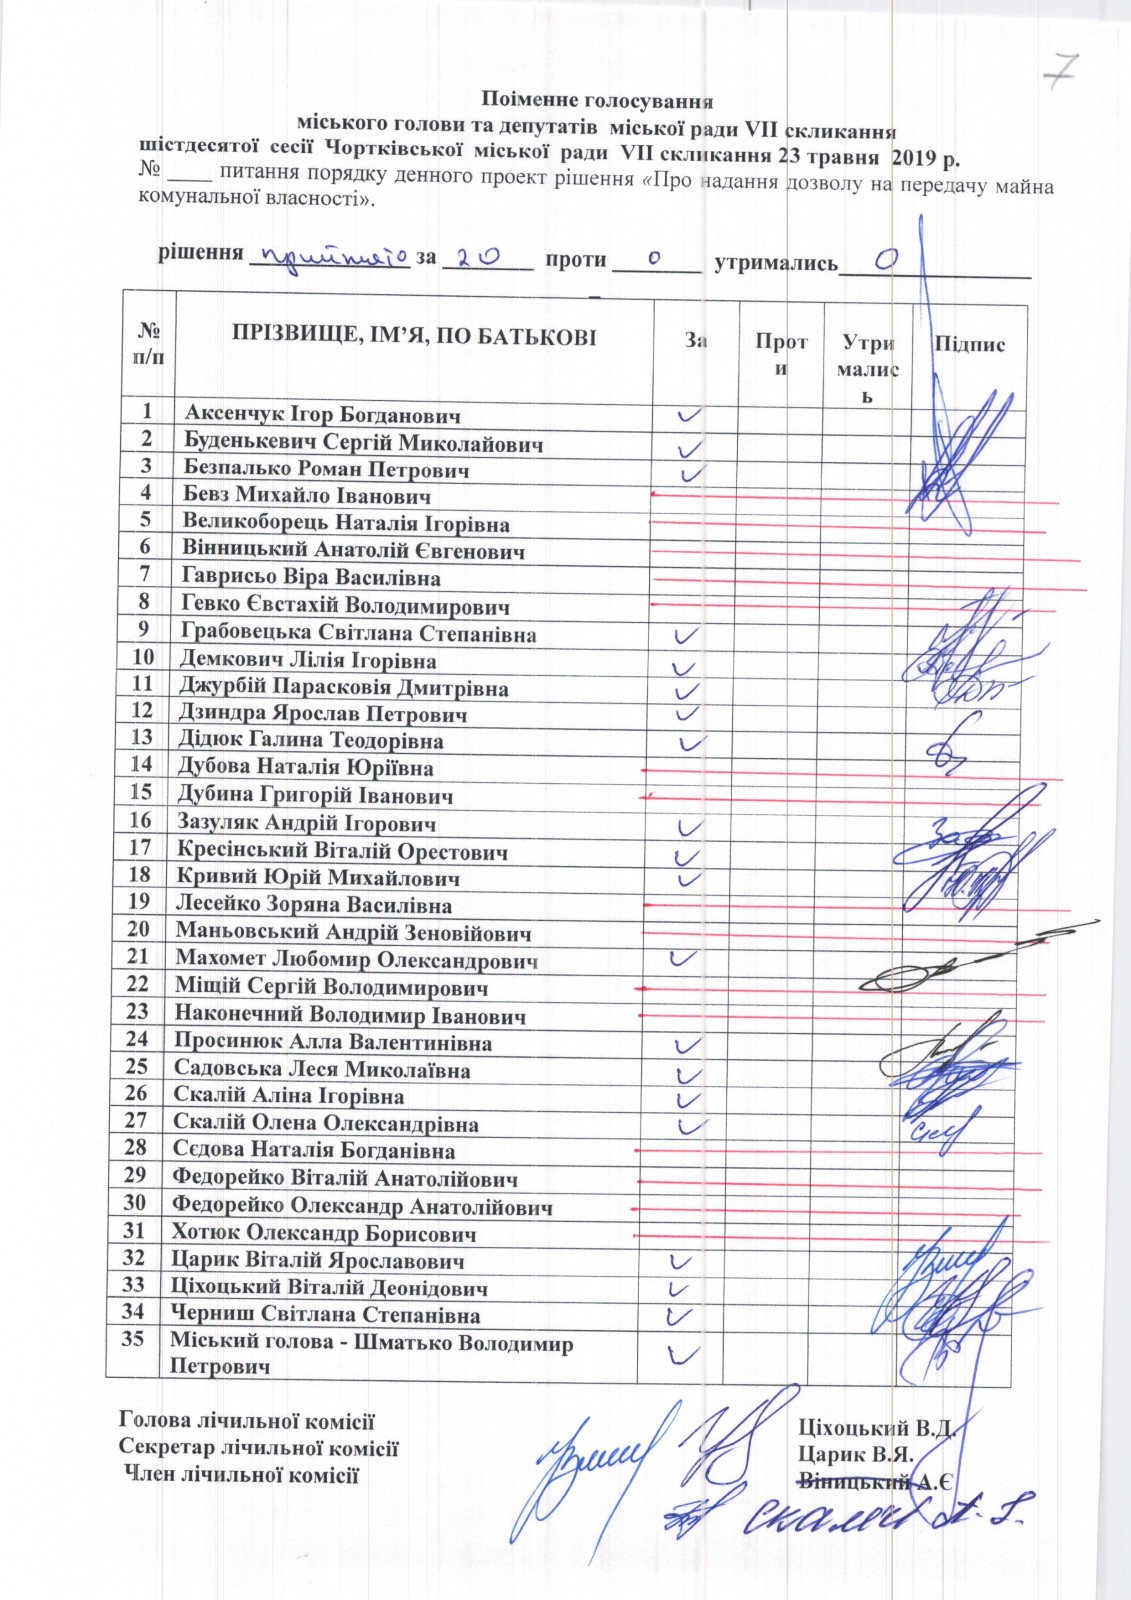 7
Поіменне голосування
міського голови та депутатів міської ради VII скликання
шістдесятої сесії Чортківської міської ради VII скликання 23 травня 2019 р.
№ ____ питання порядку денного проект рішення «Про надання дозволу на передачу майна
комунальної власності».
рішення прийнято за 20 проти 0 утримались 0
№ п/п ПРІЗВИЩЕ, ІМ’Я, ПО БАТЬКОВІ За Проти Утрималис ь Підпис
1 Аксенчук Ігор Богданович ✓
2 Буденькевич Сергій Миколайович ✓
3 Безпалько Роман Петрович ✓
4 Бевз Михайло Іванович
5 Великоборець Наталія Ігорівна
6 Вінницький Анатолій Євгенович
7 Гаврисьо Віра Василівна
8 Гевко Євстахій Володимирович
9 Грабовецька Світлана Степанівна ✓
10 Демкович Лілія Ігорівна ✓
11 Джурбій Парасковія Дмитрівна ✓
12 Дзиндра Ярослав Петрович ✓
13 Дідюк Галина Теодорівна ✓
14 Дубова Наталія Юріївна
15 Дубина Григорій Іванович
16 Зазуляк Андрій Ігорович ✓
17 Кресінський Віталій Орестович ✓
18 Кривий Юрій Михайлович ✓
19 Лесейко Зоряна Василівна
20 Маньовський Андрій Зеновійович
21 Махомет Любомир Олександрович ✓
22 Міщій Сергій Володимирович
23 Наконечний Володимир Іванович
24 Просинюк Алла Валентинівна ✓
25 Садовська Леся Миколаївна ✓
26 Скалій Аліна Ігорівна ✓
27 Скалій Олена Олександрівна ✓
28 Сєдова Наталія Богданівна
29 Федорейко Віталій Анатолійович
30 Федорейко Олександр Анатолійович
31 Хотюк Олександр Борисович
32 Царик Віталій Ярославович ✓
33 Ціхоцький Віталій Деонідович ✓
34 Черниш Світлана Степанівна ✓
35 Міський голова - Шматько Володимир ✓
Петрович
Голова лічильної комісії Ціхоцький В.Д.
Секретар лічильної комісії Царик В.Я.
Член лічильної комісії Віницький А.Є
А. І.